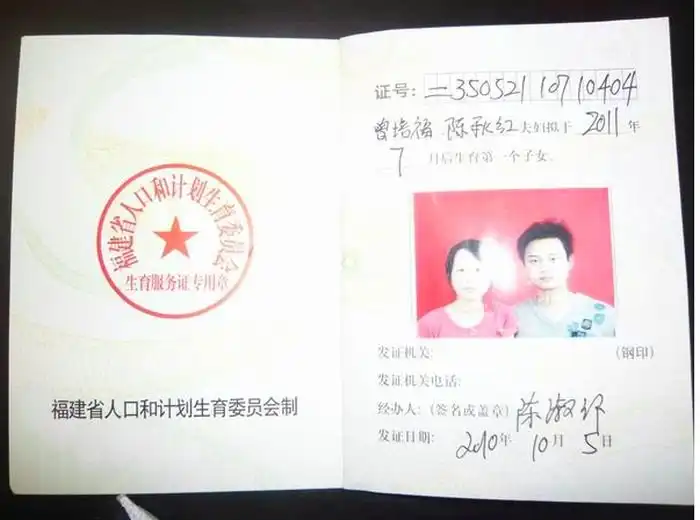 福建省人口和计划生育委员会
生育服务证专用章
福建省人口和计划生育委员会制
证号: 二350521 10710404
曾培福 陈秋红 夫妇拟于 2011 年
7 月后生育第一个子女。
发证机关: (钢印)
发证机关电话:
经办人: (签名或盖章) 陈淑
发证日期: 2010年 10月 5日